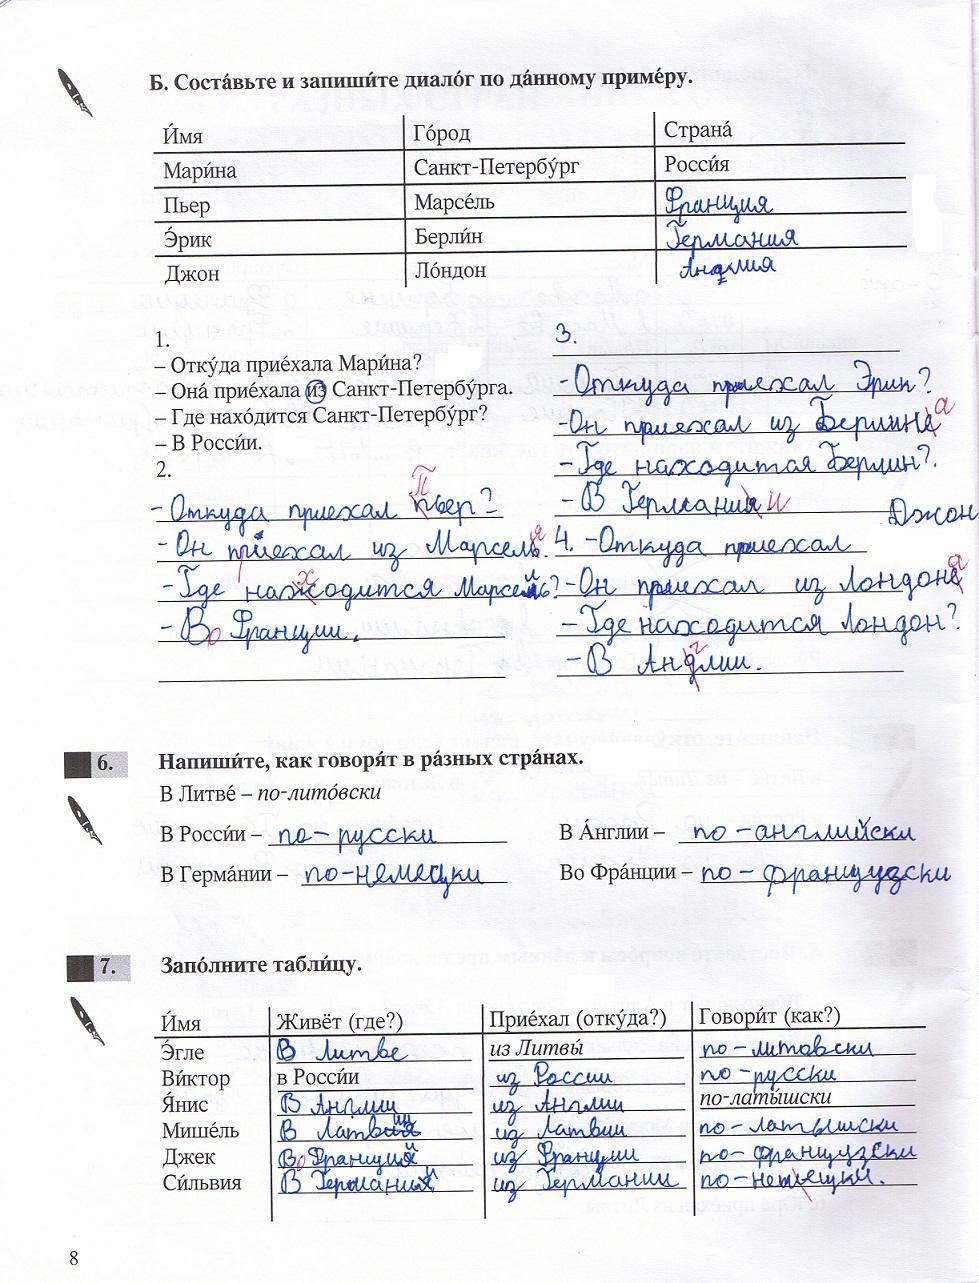 Б. Соста́вьте и запиши́те диало́г по да́нному приме́ру.
И́мя Го́род Страна́
Мари́на Санкт-Петербу́рг Росси́я
Пьер Марсе́ль Франция
Э́рик Берли́н Германия
Джон Ло́ндон Англия
1.
– Отку́да прие́хала Мари́на?
– Она́ прие́хала из Санкт-Петербу́рга.
– Где нахо́дится Санкт-Петербу́рг?
– В Росси́и.
2.
П
- Откуда приехал пьер?
- Он приехал из Марселья.
- Где находится Марсель?
- Во Франции.
3.
- Откуда приехал Эрик?
- Он приехал из Берлина
- Где находится Берлин?
- В Германии
Джон
4. - Откуда приехал
- Он приехал из Лондона
- Где находится Лондон?
г
- В Андлии.
6. Напиши́те, как говоря́т в ра́зных стра́нах.
В Литве́ – по-лито́вски
В Росси́и – по-русски В А́нглии – по-английски
В Герма́нии – по-немецки Во Фра́нции – по-французски
7. Запо́лните табли́цу.
И́мя Живёт (где?) Прие́хал (отку́да?) Говори́т (как?)
Э́гле В Литве из Литвы́ по-литовски
Ви́ктор в Росси́и из России по-русски
Я́нис В Англии из Англии по-латы́шски
Мише́ль В Латвии из Латвии по-латышски
Джек Во Франции из Франции по-французски
Си́львия В Германии из Германии по-немецки.
8